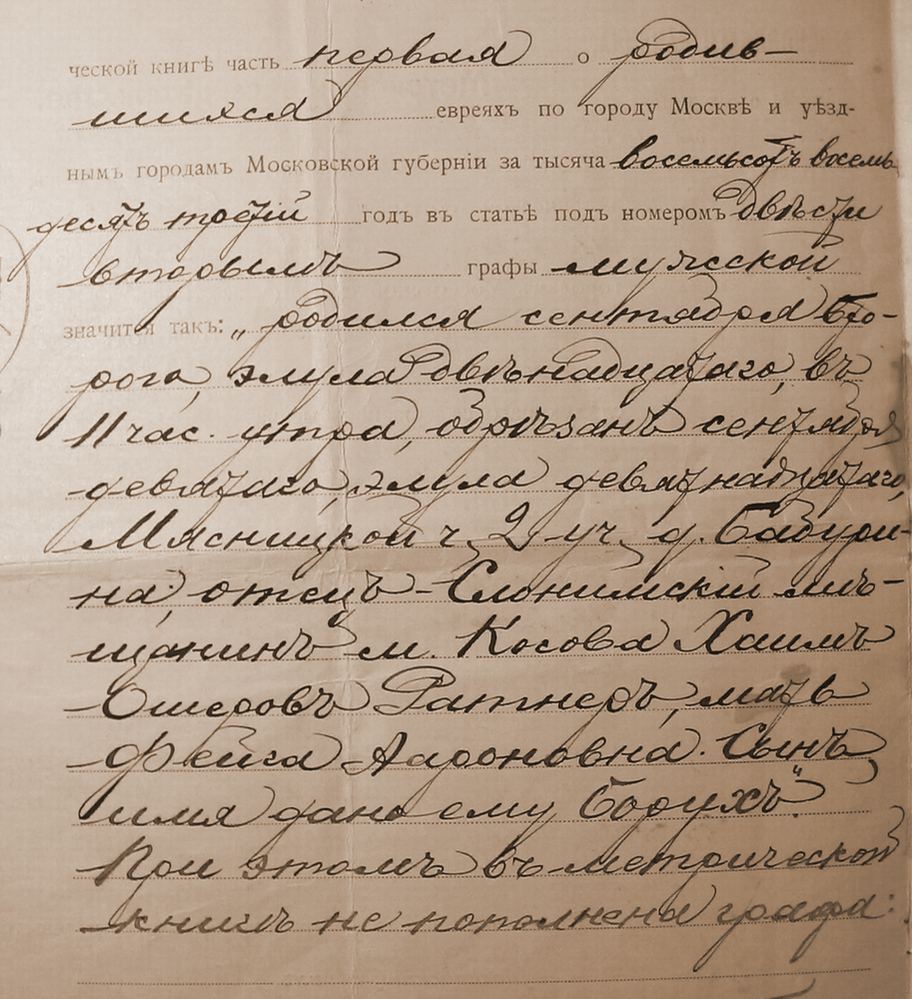 ческой книгѣ часть первая о родив-
шихся евреяхъ по городу Москвѣ и уѣзд-
нымъ городамъ Московской губерніи за тысяча восемьсотъ восемь
десятъ третій годъ въ статьѣ подъ номеромъ двѣсти
вторымъ графы мужской
значится такъ: „родился сентября вто-
рого, элула двѣнадцатаго, въ
11 час. утра, обрѣзанъ сентября
девятаго, элула девятнадцатаго,
Мясницкой ч. 2 уч. д. Бабури-
на, отецъ - Слонимскій мѣ-
щанинъ м. Косова Хаимъ
Ошеровъ Ратнеръ, мать
Фейга Аароновна. Сынъ,
имя дано ему Борухъ"
При этомъ въ метрической
книгѣ не пополнена графа: